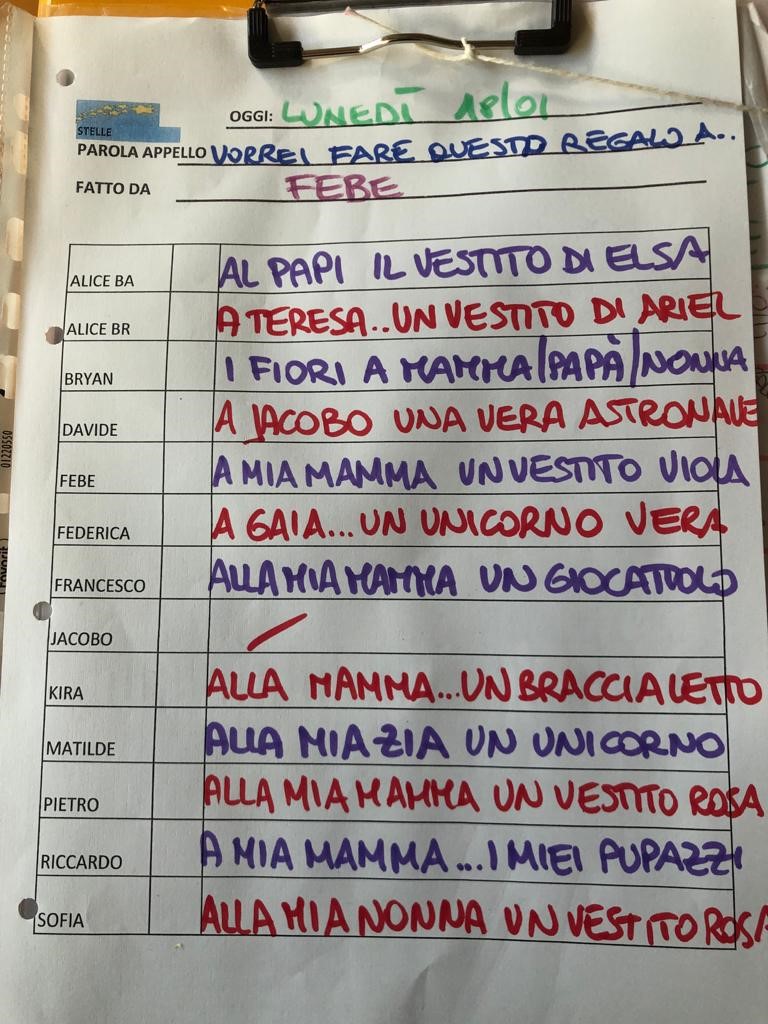 OGGI: LUNEDÌ 18/01
STELLE
PAROLA APPELLO VORREI FARE QUESTO REGALO A..
FATTO DA FEBE
ALICE BA AL PAPI IL VESTITO DI ELSA
ALICE BR A TERESA..UN VESTITO DI ARIEL
BRYAN I FIORI A MAMMA/PAPÀ/NONNA
DAVIDE A JACOBO UNA VERA ASTRONAVE
FEBE A MIA MAMMA UN VESTITO VIOLA
FEDERICA A GAIA...UN UNICORNO VERA
FRANCESCO ALLA MIA MAMMA UN GIOCATTOLO
JACOBO /
KIRA ALLA MAMMA...UN BRACCIALETTO
MATILDE ALLA MIA ZIA UN UNICORNO
PIETRO ALLA MIA MAMMA UN VESTITO ROSA
RICCARDO A MIA MAMMA...I MIEI PUPAZZI
SOFIA ALLA MIA NONNA UN VESTITO ROSA
01220550